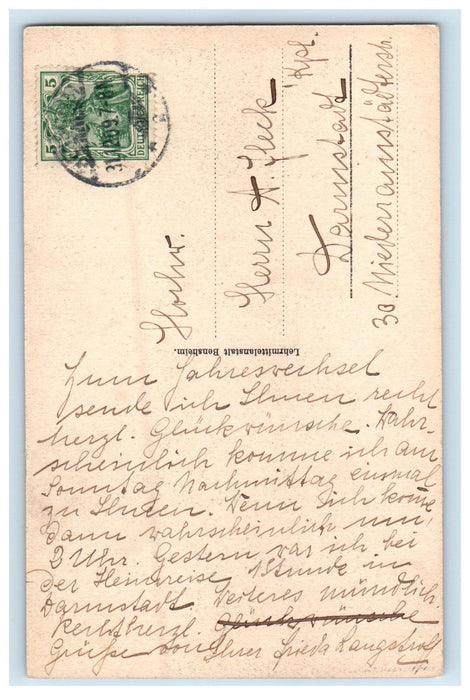 5 5
DEUTSCHES REICH
31.12.09.7-8N
Hochw.
Herrn A. Fleck
Kpl.
Darmstadt
30 Niederramstädterstr.
Lehrmittelanstalt Bensheim.
Zum Jahreswechsel
sende ich Ihnen recht
herzl. Glückwünsche. Wahr-
scheinlich komme ich am
Sonntag Nachmittag einmal
zu Ihnen. Wenn ich kom̄e
dann wahrscheinlich um
2 Uhr. Gestern war ich bei
der Heimreise 1 Stunde in
Darmstadt. Weiteres mündlich.
Recht herzl. Glückwünsche
Grüße von Ihrer Frieda Langstroff